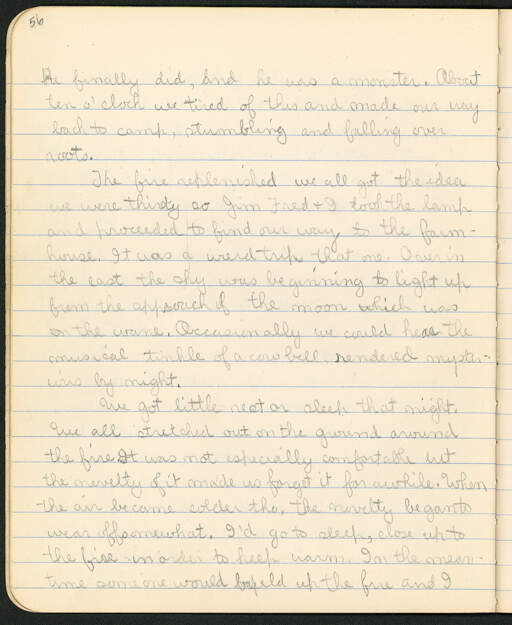 56
He finally did, and he was a monster. About
ten o'clock we tired of this and made our way
back to camp, stumbling and falling over
roots.
The fire replenished we all got the idea
we were thirsty so Jim Fred + I took the lamp
and proceeded to find our way to the farm-
house. It was a weird trip that one. Over in
the east the sky was beginning to light up
from the approach of the moon which was
on the wane. Occasionally we could hear the
musical tinkle of a cow bell, rendered myster-
ious by night.
We got little rest or sleep that night.
We all stretched out on the ground around
the fire. It was not especially comfortable but
the novelty of it made us forget it for awhile. When
the air became colder tho, the novelty began to
wear off somewhat. I'd go to sleep, close up to
the fire in order to keep warm. In the mean-
time someone would build up the fire and I